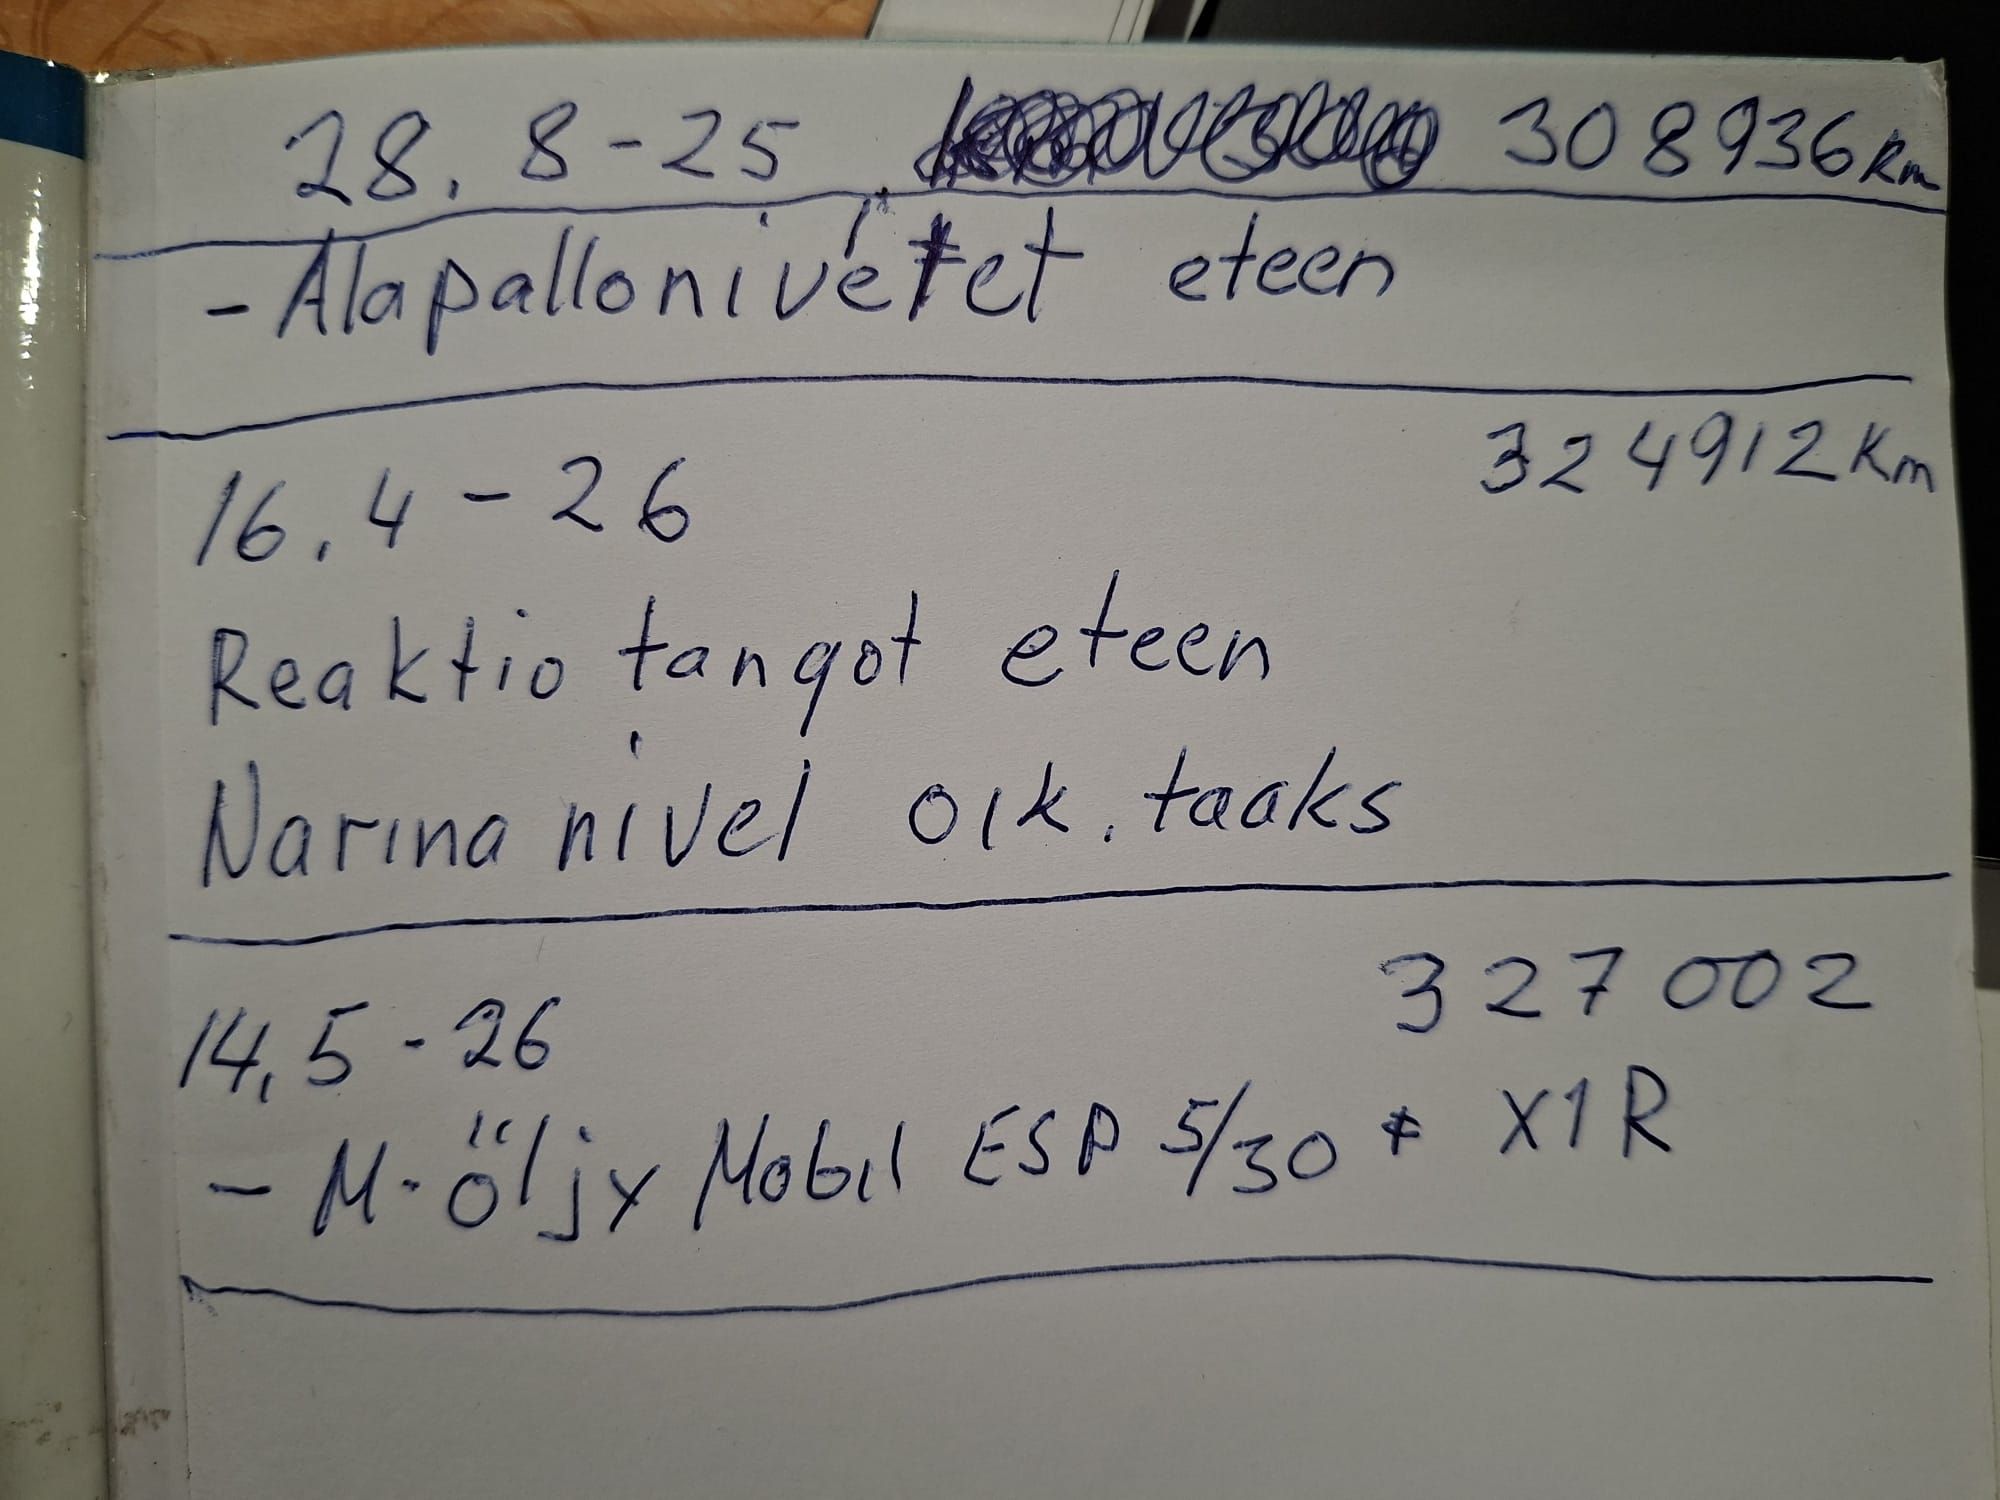 28.8-25 308936 km
- Alapallonivelet eteen
324912 km
16.4-26
Reaktio tangot eteen
Narina nivel oik. taaks
327002
14.5-26
- M-öljy Mobil ESP 5/30 + X1R